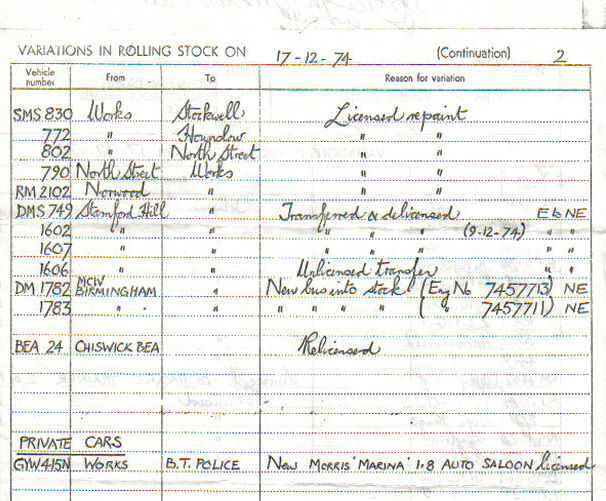 VARIATIONS IN ROLLING STOCK ON 17-12-74 (Continuation) 2
Vehicle number From To Reason for variation
SMS 830 Works Stockwell Licensed repaint
772 " Hounslow " "
802 " North Street " "
790 North Street Works " "
RM 2102 Norwood " " "
DMS 749 Stamford Hill " Transferred & delicensed E to NE
1602 " " " " " (9-12-74) " "
1607 " " " " " " "
1606 " " Unlicensed transfer " "
DM 1782 MCW BIRMINGHAM " New bus into stock (Eng No 7457713) NE
1783 " " " " " " " ( " 7457711) NE
BEA 24 CHISWICK BEA Relicensed
PRIVATE CARS
GYW415N WORKS B.T. POLICE NEW MORRIS 'MARINA' 1·8 AUTO SALOON licensed